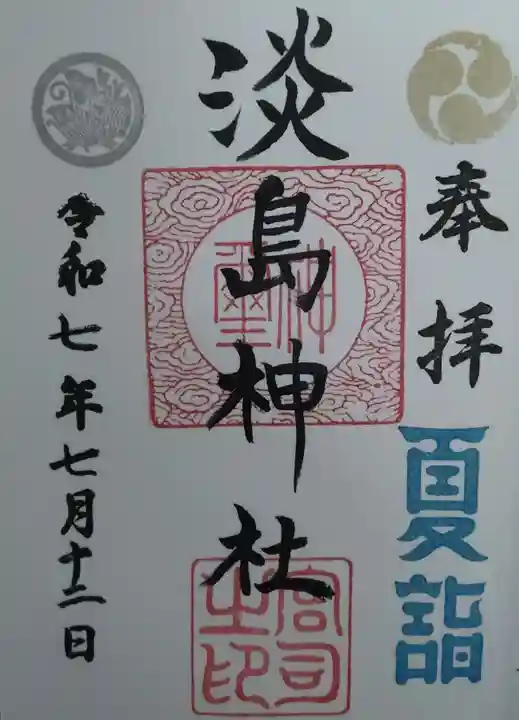 奉拝
夏詣
淡島神社
神璽
宮司之印
令和七年七月十二日